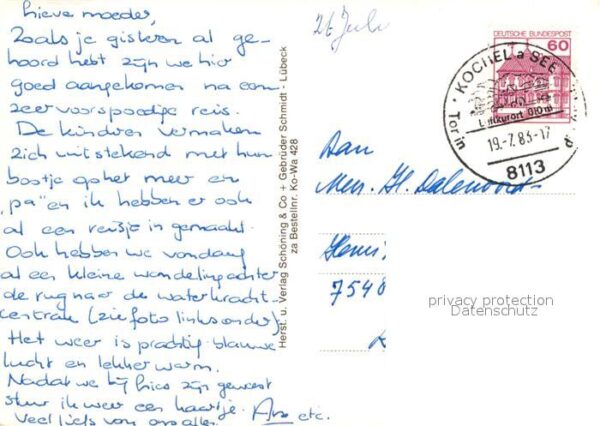 Lieve moeder,
Zoals je gisteren al ge-
hoord hebt zijn we hier
goed aangekomen na een
zeer voorspoedige reis.
De kinderen vermaken
zich uitstekend met hun
bootje op het meer en
"pa" en ik hebben er ook
al een reisje in gemaakt.
Ook hebben we vandaag
al een kleine wandeling achter
de rug naar de waterkracht-
centrale (zie foto links onder).
Het weer is prachtig blauwe
lucht en lekker warm.
Nadat we bij Frico zijn geweest
stuur ik weer een kaartje.
Veel liefs van ons allen. etc.
Herst. u. Verlag Schöning & Co + Gebrüder Schmidt - Lübeck
za Bestellnr. Ko-Wa 428
26 Juli
DEUTSCHE BUNDESPOST
60
KOCHEL a SEE
Luftkurort 610 m
Tor in
19.-7.83-17
8113
d
Aan
Mevr. H.
7540
privacy protection
Datenschutz